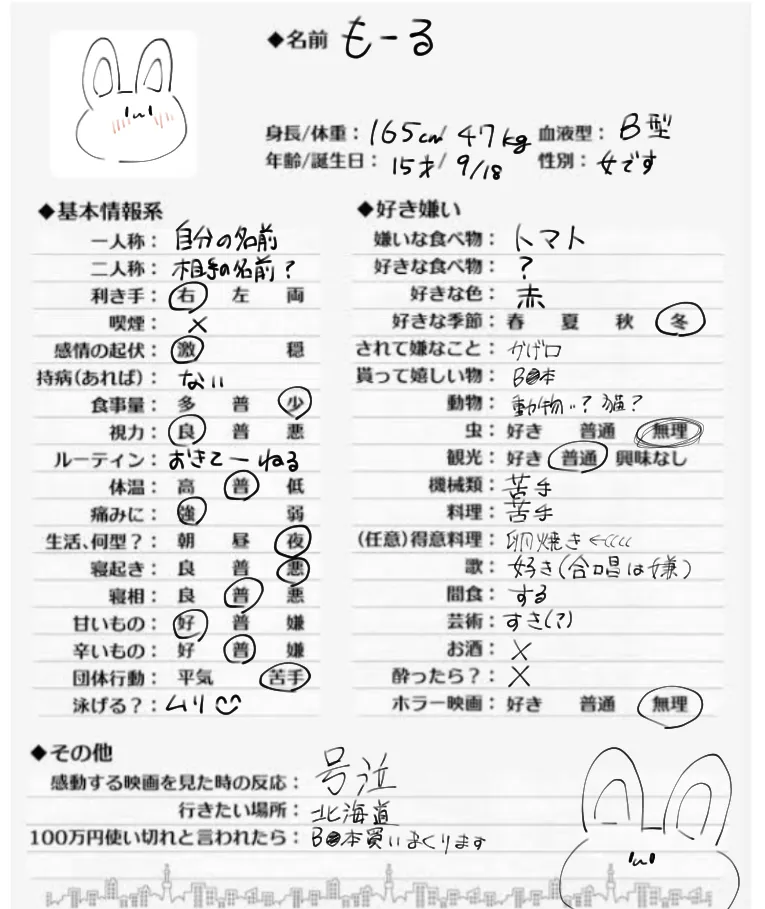 ◆名前 もーる
身長/体重： 165cm/ 47kg 血液型： B型
年齢/誕生日： 15才/ 9/18 性別： 女です
◆基本情報系
一人称： 自分の名前
二人称： 相手の名前？
利き手： 右 左 両
喫煙： ×
感情の起伏： 激 穏
持病(あれば)： ない
食事量： 多 普 少
視力： 良 普 悪
ルーティン： おきてーねる
体温： 高 普 低
痛みに： 強 弱
生活、何型？： 朝 昼 夜
寝起き： 良 普 悪
寝相： 良 普 悪
甘いもの： 好 普 嫌
辛いもの： 好 普 嫌
団体行動： 平気 苦手
泳げる？： ムリ
◆好き嫌い
嫌いな食べ物： トマト
好きな食べ物： ？
好きな色： 赤
好きな季節： 春 夏 秋 冬
されて嫌なこと： かげ口
貰って嬉しい物： B●本
動物： 動物..？猫？
虫： 好き 普通 無理
観光： 好き 普通 興味なし
機械類： 苦手
料理： 苦手
(任意)得意料理： 卵焼き←((((
歌： 好き(合唱は嫌)
間食： する
芸術： すき(?)
お酒： ×
酔ったら？： ×
ホラー映画： 好き 普通 無理
◆その他
感動する映画を見た時の反応： 号泣
行きたい場所： 北海道
100万円使い切れと言われたら： B●本買いまくります